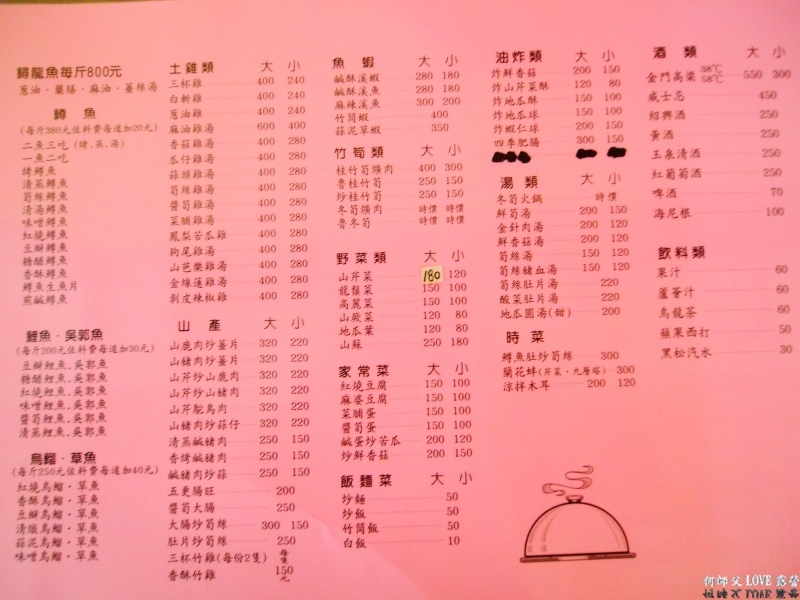 鱘龍魚每斤800元
蔥油．藥膳．麻油．薑絲湯
鱒 魚
(每斤380元佐料費每道加20元)
二魚三吃 (烤.蒸.湯)
一魚二吃
烤鱒魚
清蒸鱒魚
筍絲鱒魚
清湯鱒魚
味噌鱒魚
紅燒鱒魚
豆瓣鱒魚
糖醋鱒魚
香酥鱒魚
鱒魚生魚片
煎鹹鱒魚
鯉魚．吳郭魚
(每斤200元佐料費每道加30元)
豆瓣鯉魚.吳郭魚
糖醋鯉魚.吳郭魚
紅燒鯉魚.吳郭魚
味噌鯉魚.吳郭魚
醬筍鯉魚.吳郭魚
清蒸鯉魚.吳郭魚
烏鰡．草魚
(每斤250元佐料費每道加40元)
紅燒烏鰡．草魚
香酥烏鰡．草魚
豆瓣烏鰡．草魚
清燉烏鰡．草魚
蒜泥烏鰡．草魚
味噌烏鰡．草魚
土雞類 大 小
三杯雞 400 240
白斬雞 400 240
蔥油雞 400 240
麻油雞湯 600 400
香菇雞湯 400 280
瓜仔雞湯 400 280
蒜頭雞湯 400 280
筍絲雞湯 400 280
醬筍雞湯 400 280
菜脯雞湯 400 280
鳳梨苦瓜雞 400 280
狗尾雞湯 400 280
山芭樂雞湯 400 280
金線蓮雞湯 400 280
剝皮辣椒雞 400 280
山 產 大 小
山鹿肉炒薑片 320 220
山豬肉炒薑片 320 220
山芹炒山鹿肉 320 220
山芹炒山豬肉 320 220
山芹鴕鳥肉 320 220
山豬肉炒蒜仔 320 220
清蒸鹹豬肉 250 150
香烤鹹豬肉 250 150
鹹豬肉炒蒜 250 150
五更腸旺 200
醬筍大腸 250
大腸炒筍絲 300 150
肚片炒筍絲 250
三杯竹雞(每份2隻) 每隻150元
香酥竹雞
魚 蝦 大 小
鹹酥溪蝦 280 180
鹹酥溪魚 280 180
麻辣溪魚 300 200
竹筒蝦 400
蒜泥草蝦 350
竹筍類 大 小
桂竹筍爌肉 400 300
魯桂竹筍 250 150
炒桂竹筍 250 150
冬筍爌肉 時價 時價
魯冬筍 時價 時價
野菜類 大 小
山芹菜 180 120
龍鬚菜 150 100
高麗菜 150 100
山厥菜 120 80
地瓜葉 120 80
山蘇 250 180
家常菜 大 小
紅燒豆腐 150 100
麻婆豆腐 150 100
菜脯蛋 150 100
醬筍蛋 150 100
鹹蛋炒苦瓜 200 120
炒鮮香菇 200 150
飯麵菜 大 小
炒麵 50
炒飯 50
竹筒飯 50
白飯 10
油炸類 大 小
炸鮮香菇 200 150
炸山芹菜酥 120 80
炸地瓜酥 150 100
炸地瓜球 150 100
炸蝦仁球 200 150
四季肥腸 300 150
湯 類 大 小
冬筍火鍋 時價
鮮筍湯 200 150
金針肉湯 200 120
鮮香菇湯 200 120
筍絲湯 150 120
筍絲豬血湯 150 120
筍絲肚片湯 220
酸菜肚片湯 220
地瓜圓湯(甜) 200
時 菜
鱒魚肚炒筍絲 300
蘭花蚌(芹菜．九層塔) 300
涼拌木耳 200 120
酒 類 大 小
金門高粱 38℃ 58℃ 550 300
威士忌 450
紹興酒 250
黃酒 250
玉泉清酒 250
紅葡萄酒 250
啤酒 70
海尼根 100
飲料類
果汁 60
蘆薈汁 60
烏龍茶 60
蘋果西打 50
黑松汽水 30
何師父 LOVE 露營